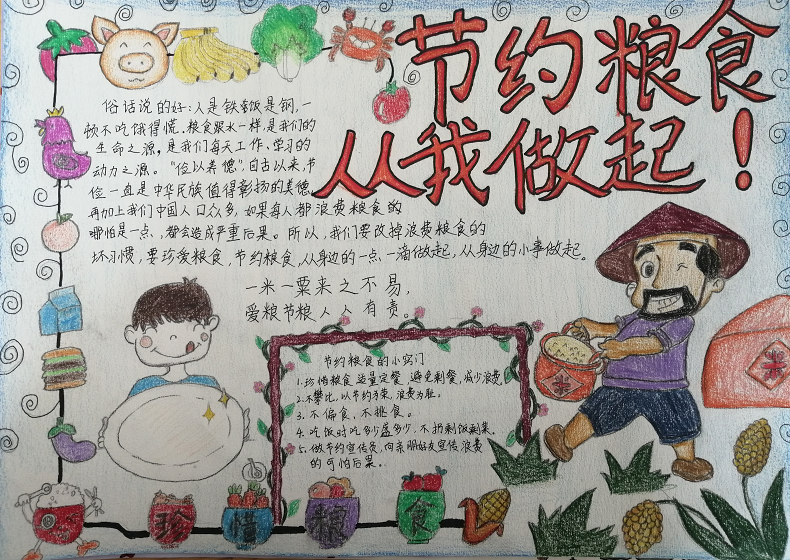 节约粮食
从我做起！
俗话说的好:人是铁饭是钢,一
顿不吃饿得慌。粮食跟水一样,是我们的
生命之源,是我们每天工作、学习的
动力之源。“俭以养德”,自古以来,节
俭一直是中华民族值得彰扬的美德,
再加上我们中国人口众多,如果每人都浪费粮食的
哪怕是一点、,都会造成严重后果。所以,我们要改掉浪费粮食的
坏习惯,要珍爱粮食,节约粮食,从身边的一点、一滴做起,从身边的小事做起。
一米一粟来之不易,
爱粮节粮人人有责。
节约粮食的小窍门
1.珍惜粮食适量定餐,避免剩餐,减少浪费。
2.不攀比,以节约为荣,浪费为耻。
3.不偏食,不挑食。
4.吃饭时吃多少盛多少,不扔剩饭剩菜。
5.做节约宣传员,向亲朋好友宣传浪费
的可怕后果。
米
米
珍惜粮食